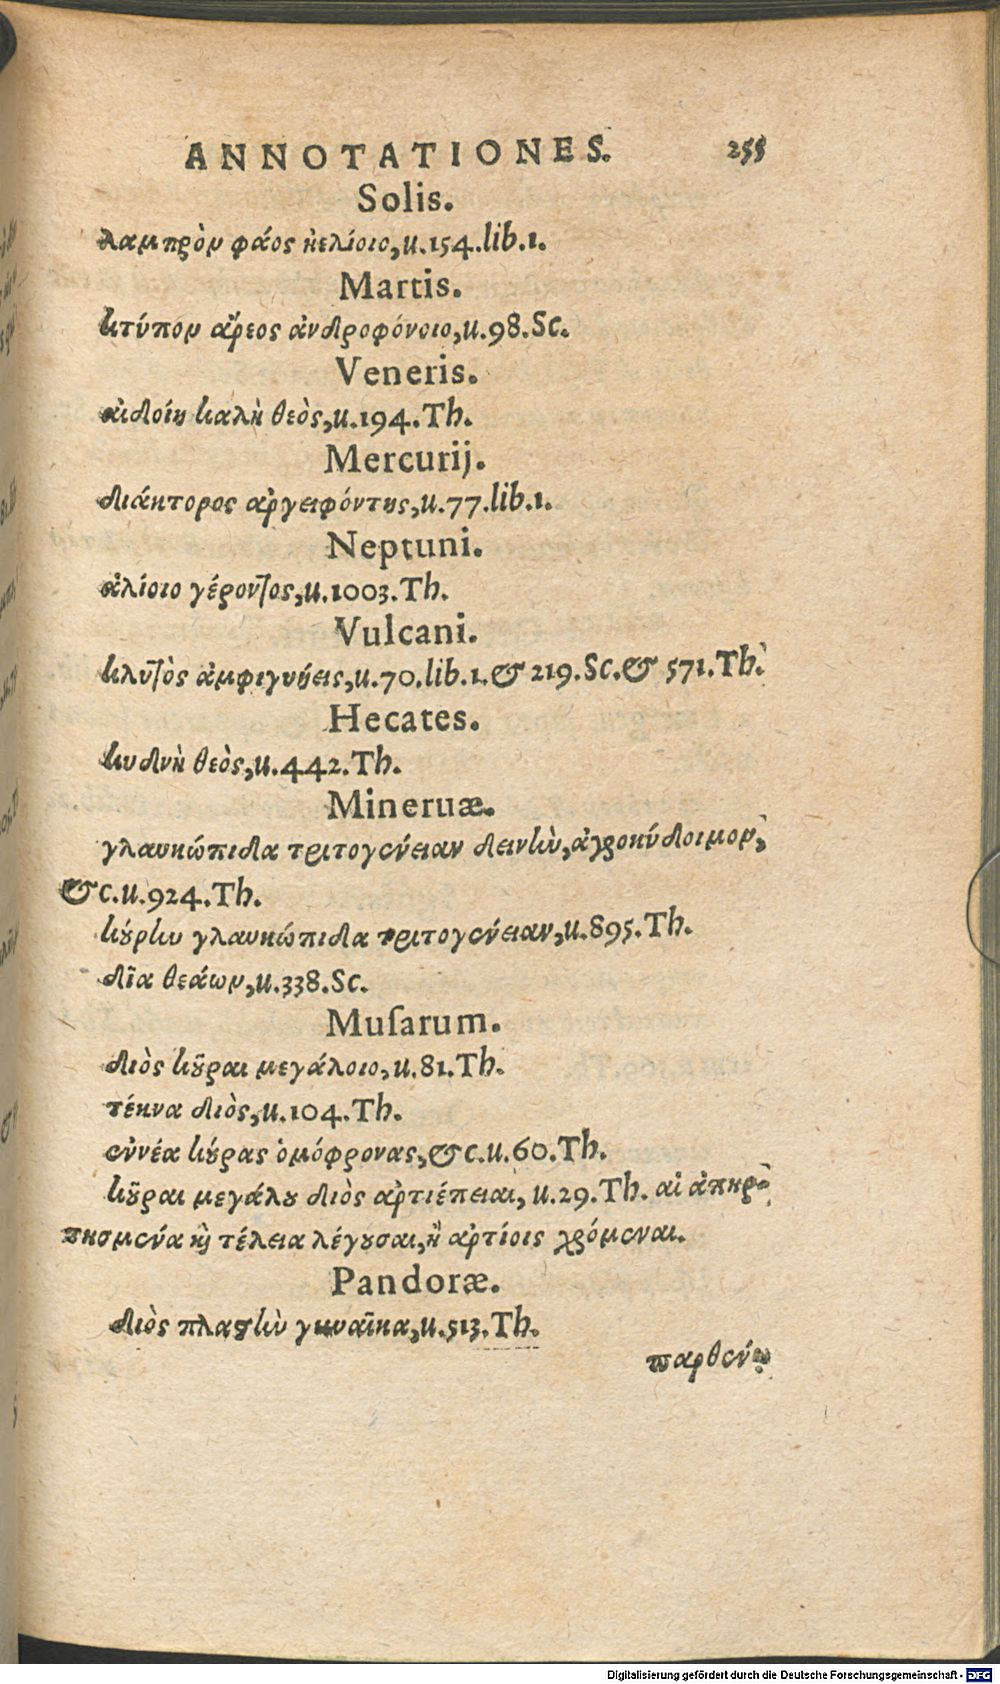 ANNOTATIONES. 255
Solis.
λαμπρὸν φάος ἠελίοιο,u.154.lib.1.
Martis.
κτύπον ἄρεος ἀνδροφόνοιο,u.98.Sc.
Veneris.
αἰδοίη καλὴ θεὸς,u.194.Th.
Mercurij.
διάκτορος ἀργειφόντης,u.77.lib.1.
Neptuni.
ἁλίοιο γέροντος,u.1003.Th.
Vulcani.
κλυτὸς ἀμφιγυήεις,u.70.lib.1.& 219.Sc.& 571.Th.
Hecates.
κυδνὴ θεὸς,u.442.Th.
Mineruæ.
γλαυκώπιδα τριτογένειαν δεινὴν,ἀγροκύδοιμον,
&c.u.924.Th.
κούρην γλαυκώπιδα τριτογένειαν,u.895.Th.
δῖα θεάων,u.338.Sc.
Muſarum.
διὸς κοῦραι μεγάλοιο,u.81.Th.
τέκνα διὸς,u.104.Th.
ἐννέα κούρας ὁμόφρονας,&c.u.60.Th.
κοῦραι μεγάλου διὸς ἀρτιέπειαι, u.29.Th. αἱ ἀπηρ-
τησμένα καὶ τέλεια λέγουσαι,ἢ ἀρτίοις χρόμεναι.
Pandoræ.
διὸς πλαστὴν γυναῖκα,u.513.Th.
παρθένω
Digitalisierung gefördert durch die Deutsche Forschungsgemeinschaft - DFG